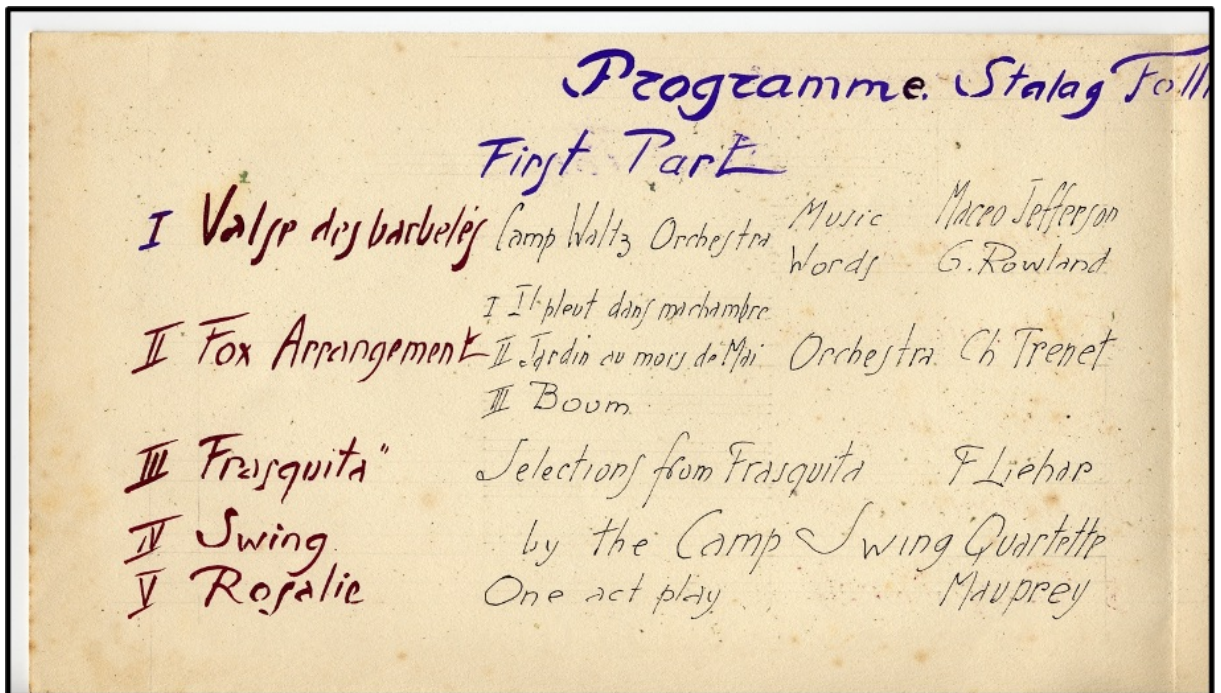 Programme. Stalag Foll
First Part
I Valse des barbelés Camp Waltz Orchestra Music Maceo Jefferson
Words G. Rowland
I Il pleut dans ma chambre
II Fox Arrangement II Jardin au mois de Mai Orchestra Ch Trenet
III Boum
III Frasquita" Selections from Frasquita F Liehar
IV Swing by the Camp Swing Quartette
V Rosalie One act play Mauprey